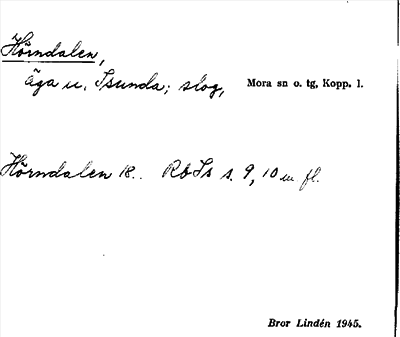 Hörndalen,
äga u. Isunda; slog, Mora sn o. tg, Kopp. l.
Hörndalen 18.. RbIs s. 9, 10 m fl.
Bror Lindén 1945.